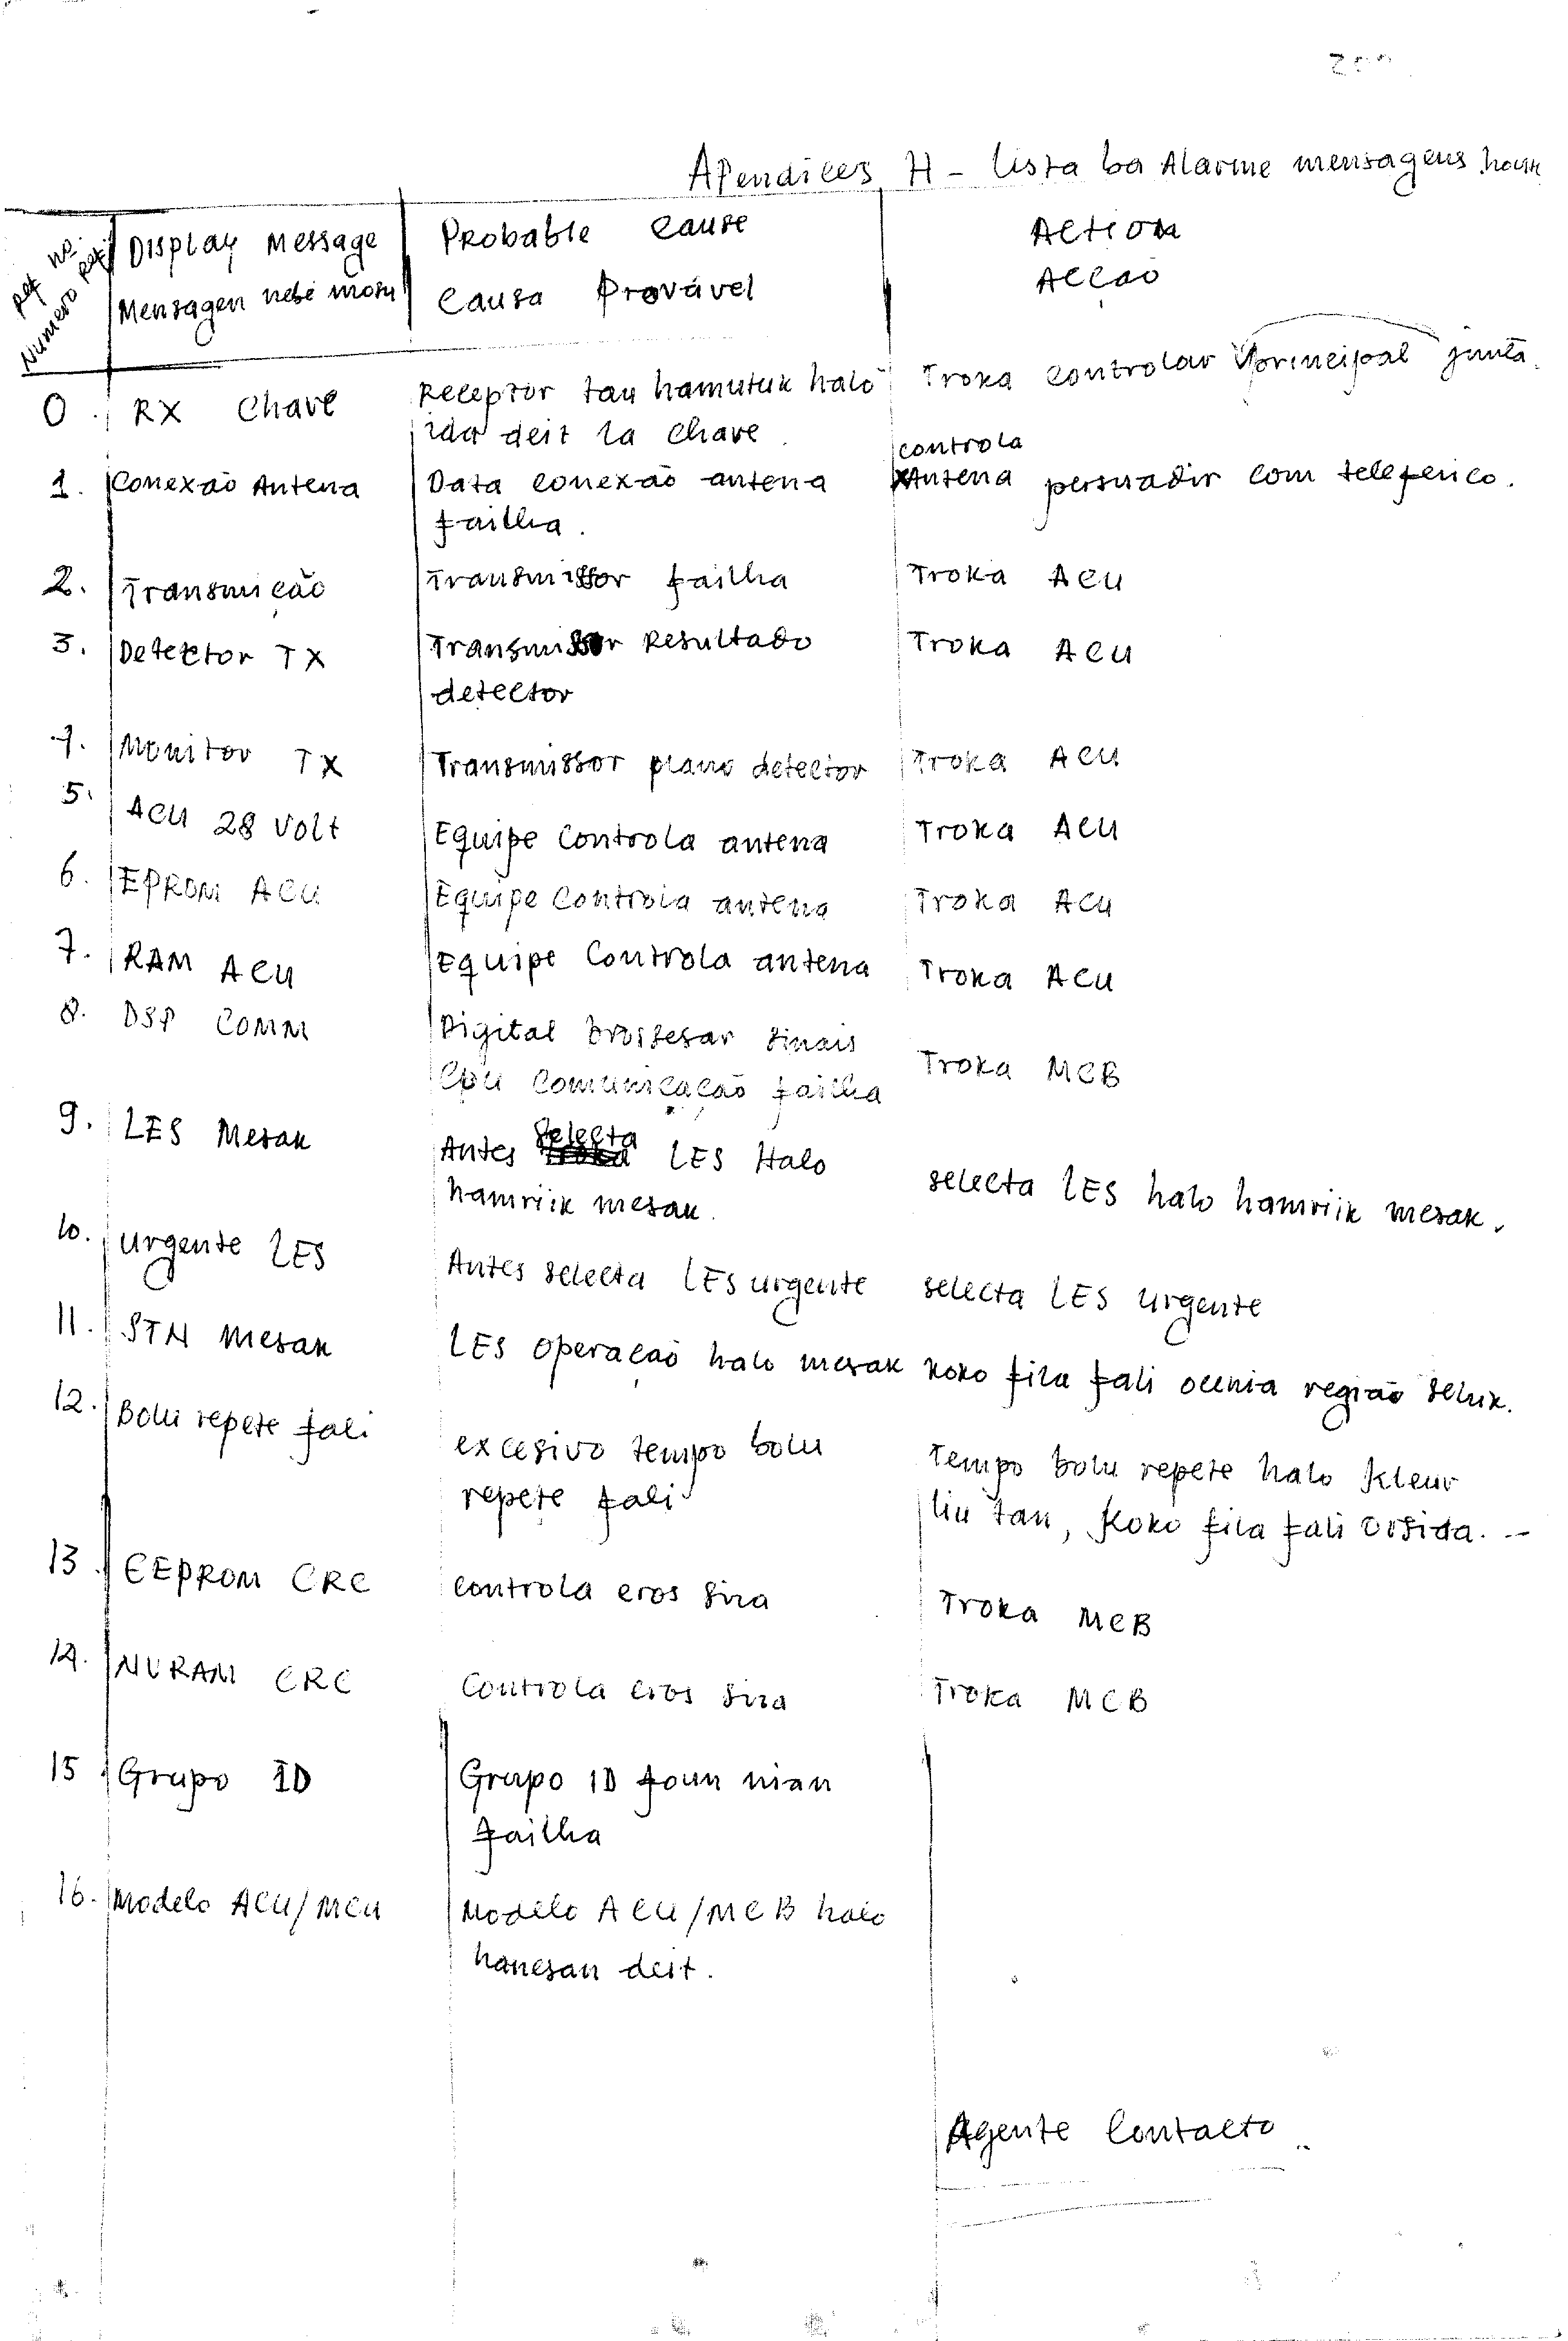 Apendices H - lista ba Alarme mensagens
Ref No.
Numero Ref
Display Message
Probable cause
Action
Mensagen nebé mosu
Causa Provável
Acção
0. RX Chave
Receptor tau hamutuk halo
Troka controlar principal junta.
ida deit la chave.
controla
1. Conexão Antena
Data conexão antena
Antena persuadir com teleferico.
failha.
2. Transmição
Transmissor failha
Troka ACU
3. Detector TX
Transmissor Resultado
Troka ACU
detector
4. Monitor TX
Transmissor plano detector
Troka ACU
5. ACU 28 Volt
Equipe Controla antena
Troka ACU
6. EPROM ACU
Equipe Controla antena
Troka ACU
7. RAM ACU
Equipe Controla antena
Troka ACU
8. DSP COMM
Digital prossesar sinais
Troka MCB
CPU Comunicação failha
9. LES Mesak
Antes Selecta LES Halo
selecta LES halo hamriik mesak.
hamriik mesak.
10. Urgente LES
Antes selecta LES urgente
selecta LES urgente
11. STN Mesak
LES Operação halo mesak
koko fila fali região seluk.
12. Bolu repete fali
excesivo tempo bolu
Tempo bolu repete halo kleur
repete fali
liu tan, koko fila fali orsida.
13. EEPROM CRC
Controla eros sira
Troka MCB
14. NVRAM CRC
Controla eros sira
Troka MCB
15 Grupo ID
Grupo ID foun nian
failha
16. Modelo ACU/MCU
Modelo ACU/MCB halo
hanesan deit.
Agente Contacto